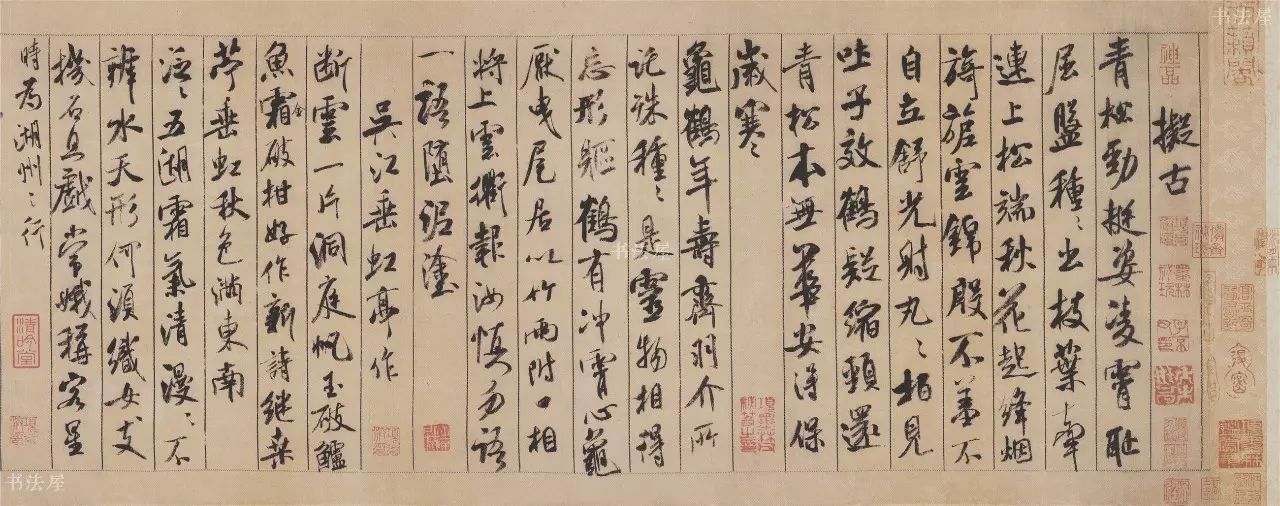 擬古
青松勁挺姿凌霄恥
屈盤種〻出枝葉牽
連上松端秋花起絳烟
旖旎雲錦殷不羞不
自立舒光射丸〻柏見
吐子效鶴疑縮頸還
青松本無華安得保
歲寒
龜鶴年壽齊羽介所
託殊種〻是靈物相得
忘形軀鶴有沖霄心龜
厭曳尾居以竹兩附口相
將上雲衢報汝慎勿語
一語墮泥塗
吳江垂虹亭作
断雲一片洞庭帆玉破鱸
魚霜金破柑好作新詩継桑
苧垂虹秋色滿東南
泛〻五湖霜氣清漫〻不
辨水天形何須織女支
機石且戲常娥稱客星
時為湖州之行
清吟堂
书法屋
书法屋
书法屋
书法屋